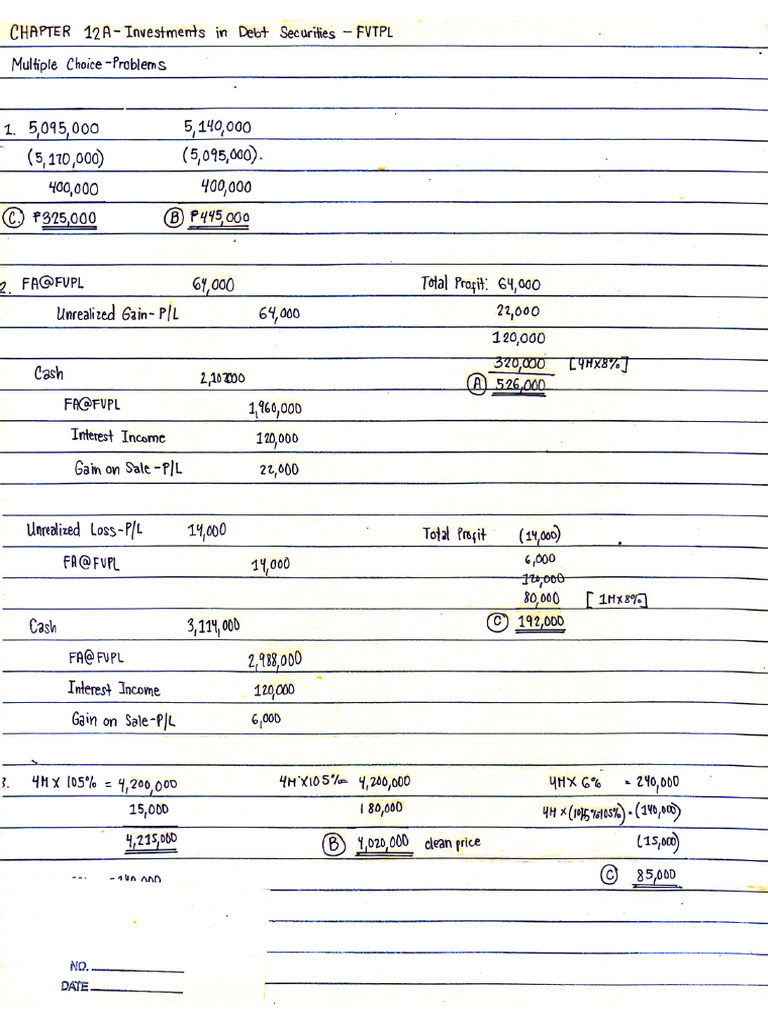 CHAPTER 12A - Investments in Debt Securities - FVTPL
Multiple Choice - Problems
1. 5,095,000 5,140,000
(5,170,000) (5,095,000).
400,000 400,000
C. ₱325,000 B ₱445,000
2. FA@FVPL 64,000 Total Profit: 64,000
Unrealized Gain - P/L 64,000 22,000
120,000
320,000 [4M X 8%]
Cash A 526,000
FA@FVPL 1,960,000
Interest Income 120,000
Gain on Sale - P/L 22,000
Unrealized Loss - P/L 14,000 Total Profit (14,000)
FA@FVPL 14,000 6,000
120,000
80,000 [1M X 8%]
Cash 3,114,000 C 192,000
FA@FVPL 2,988,000
Interest Income 120,000
Gain on Sale - P/L 6,000
3. 4M X 105% = 4,200,000 4M X 105% = 4,200,000 4M X 6% = 240,000
15,000 180,000 4M X = (140,000)
4,215,000 B 4,020,000 clean price (15,000)
C 85,000
NO.
DATE